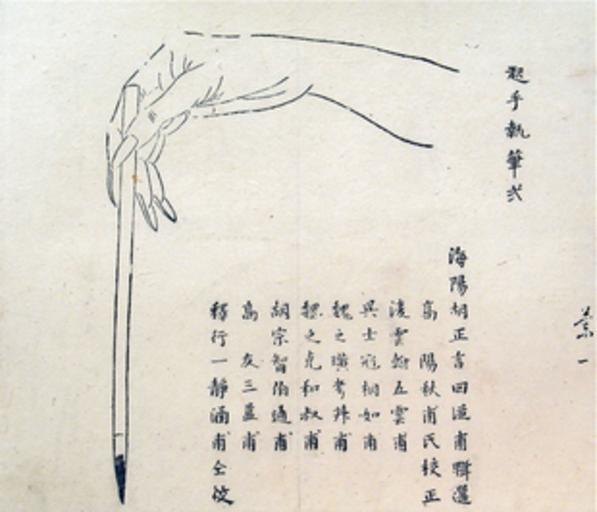 起手執筆式
海陽胡正言曰從甫輯選
高陽秋甫氏校正
凌雲翰五雲甫
吳士冠相如甫
魏之璜考叔甫
魏之克和叔甫
胡宗智伯通甫
高友三益甫
釋行一靜涵甫仝校